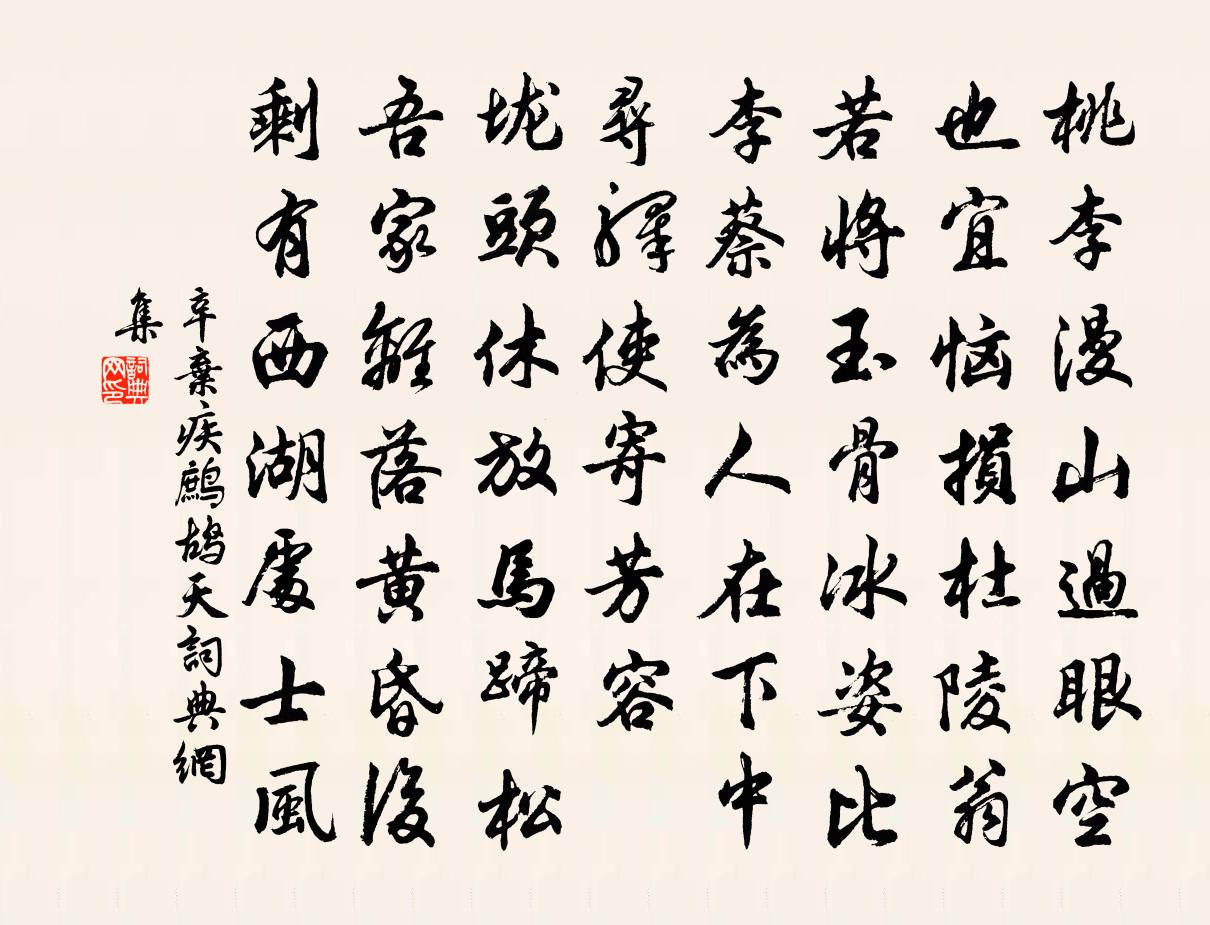 桃李漫山過眼空
也宜恼損杜陵翁
若將玉骨冰姿比
李蔡為人在下中
尋驛使寄芳容
垅頭休放馬蹄松
吾家離落黃昏後
剩有西湖處士風
辛棄疾鷓鴣天詞典網
集
詞典网印